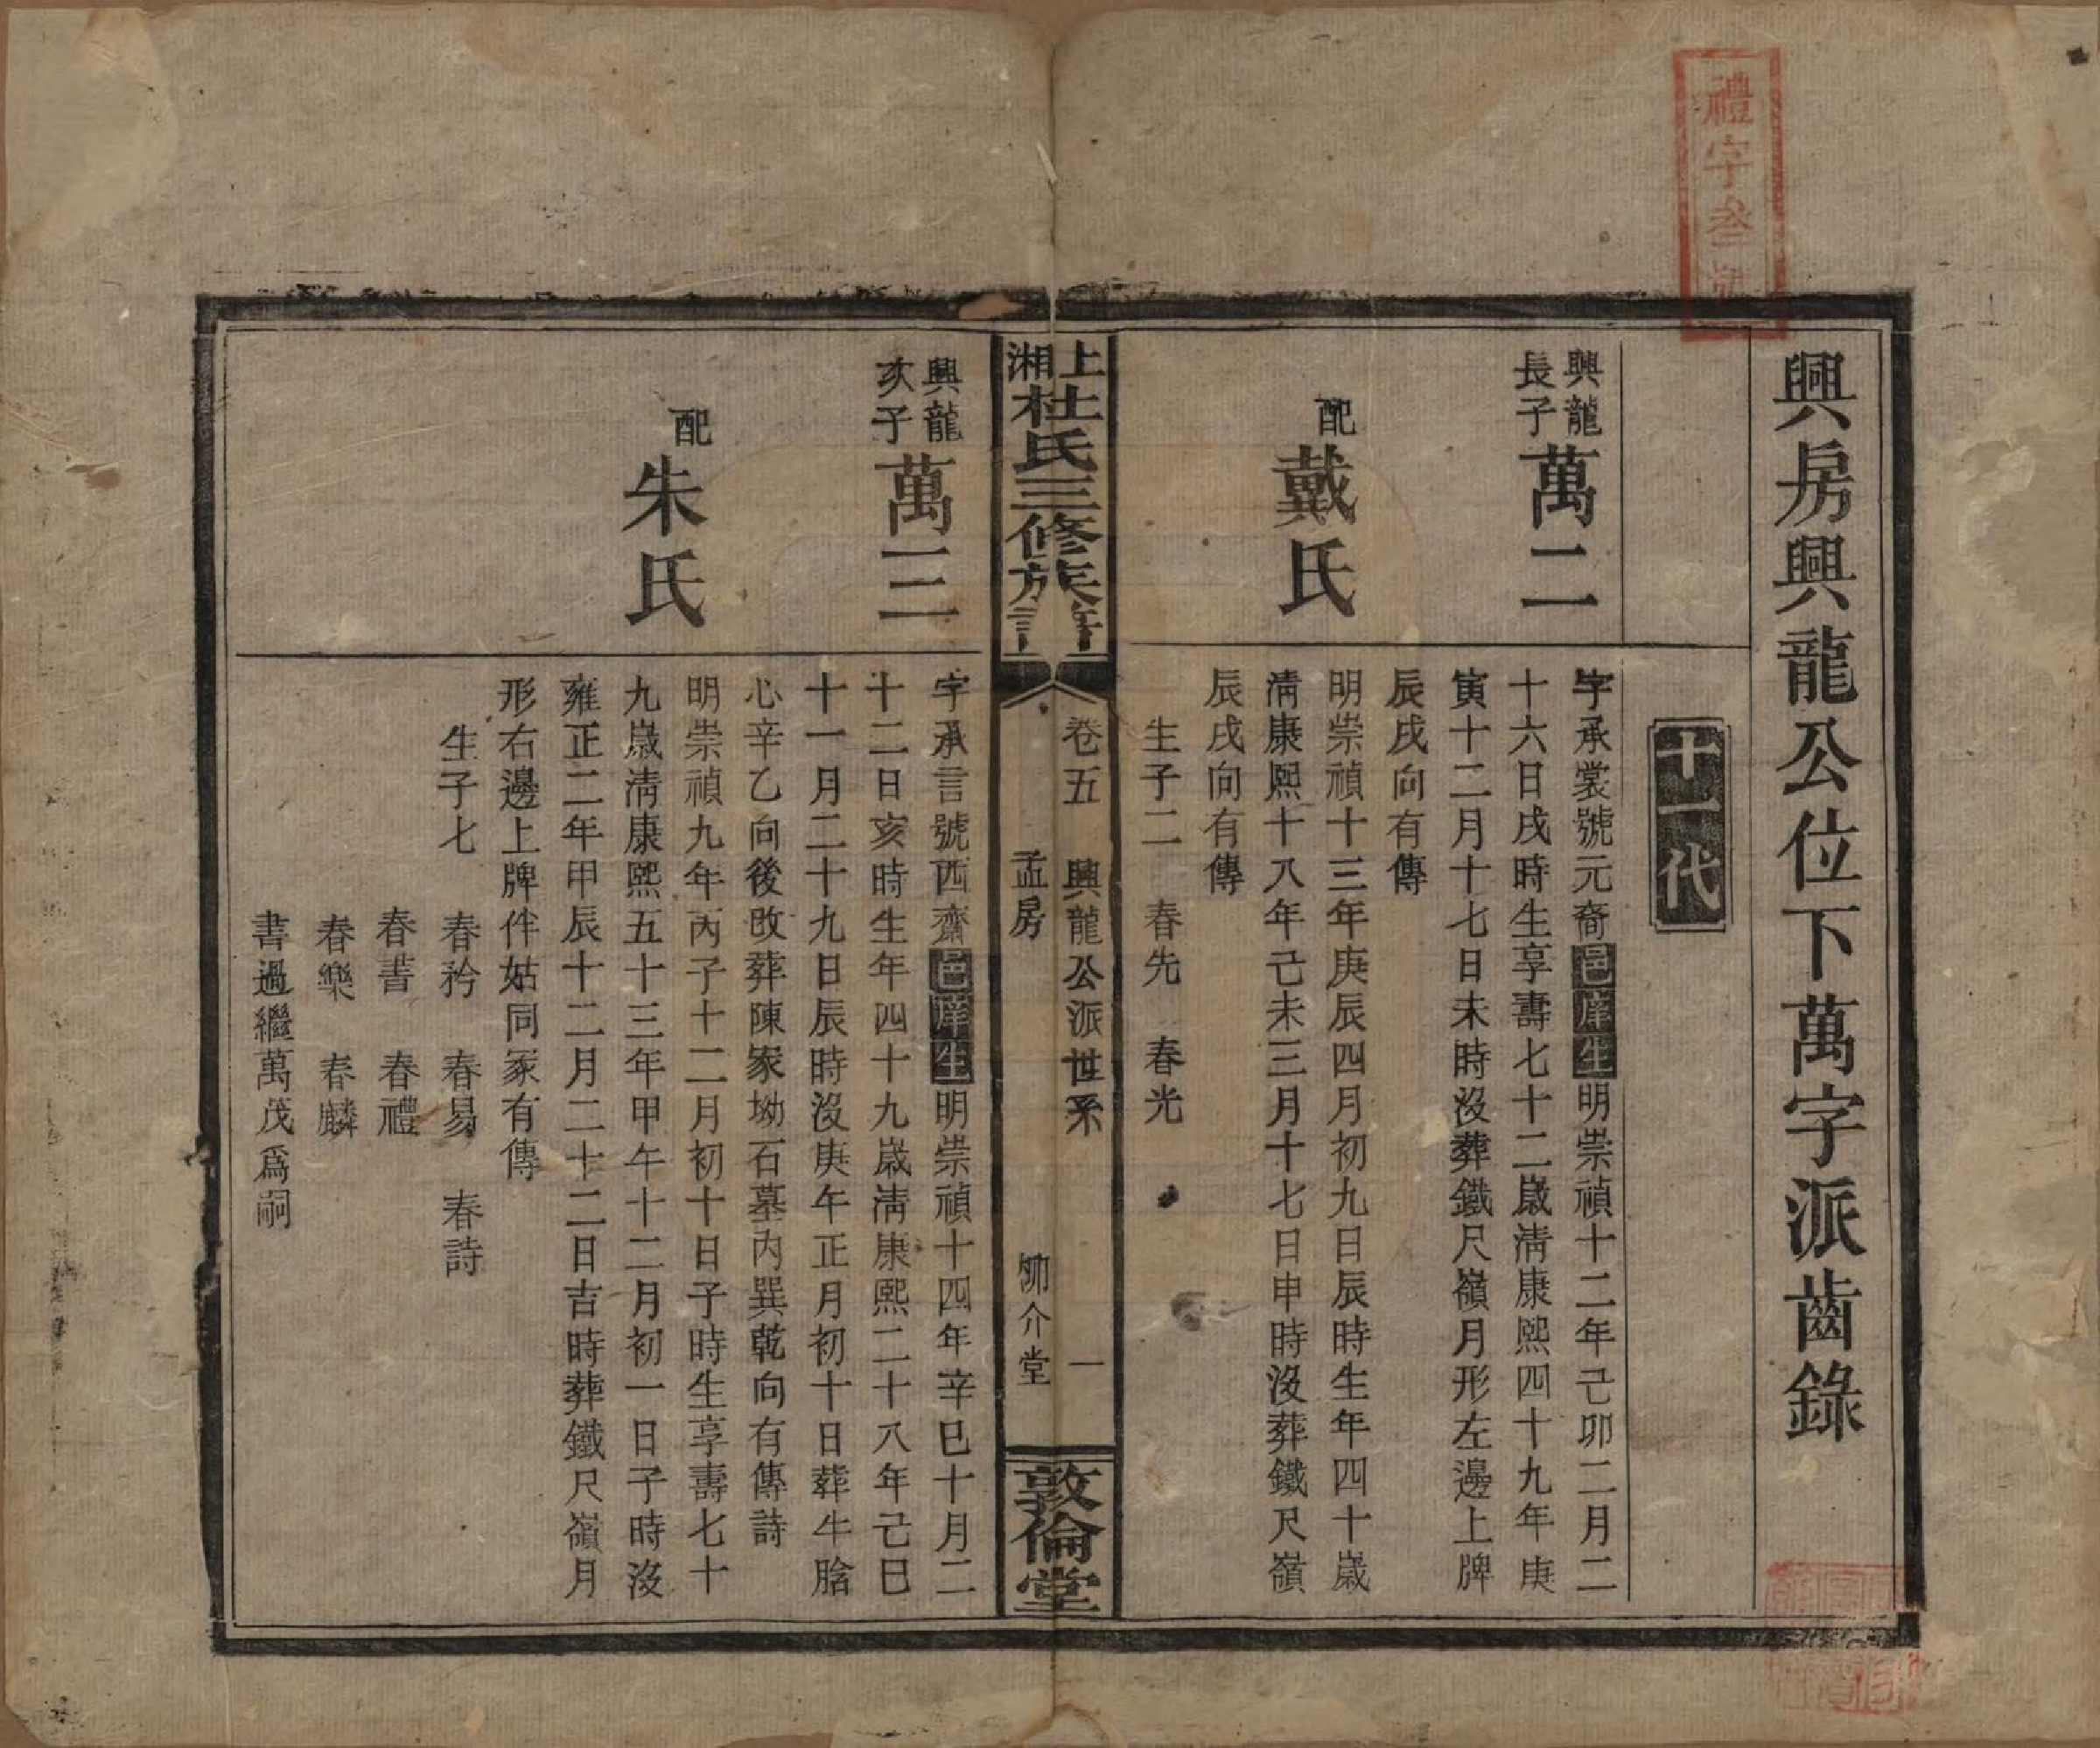 禮字叁號
興房興龍公位下萬字派齒錄
十一代
興龍
長子
萬二
字承裳號元裔邑庠生明崇禎十二年己卯二月二
十六日戌時生享壽七十二歲清康熙四十九年庚
寅十二月十七日未時沒葬鐵尺嶺月形左邊上牌
辰戌向有傳
配
戴氏
明崇禎十三年庚辰四月初九日辰時生年四十歲
清康熙十八年己未三月十七日申時沒葬鐵尺嶺
辰戌向有傳
生子二 春先 春光
上湘杜氏三修族譜
卷五 興龍公派世系 一
孟房 卿介堂
敦倫堂
興龍
次子
萬三
字承言號西齋邑庠生明崇禎十四年辛巳十月二
十二日亥時生年四十九歲清康熙二十八年己巳
十一月二十九日辰時沒庚午正月初十日葬牛胎
心辛乙向後改葬陳家坳石墓內巽乾向有傳詩
配
朱氏
明崇禎九年丙子十二月初十日子時生享壽七十
九歲清康熙五十三年甲午十二月初一日子時沒
雍正二年甲辰十二月二十二日吉時葬鐵尺嶺月
形右邊上牌伴姑同冢有傳
生子七 春矜 春易 春詩
春書 春禮
春樂 春麟
書過繼萬茂爲嗣